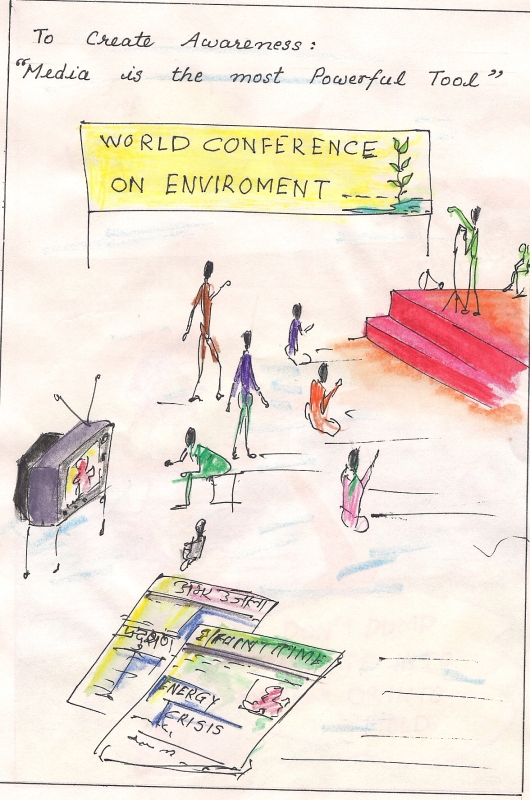 To Create Awareness:
"Media is the most Powerful Tool"
WORLD CONFERENCE
ON ENVIROMENT
अमर उजाला
प्रदूषण
ENERGY
CRISIS